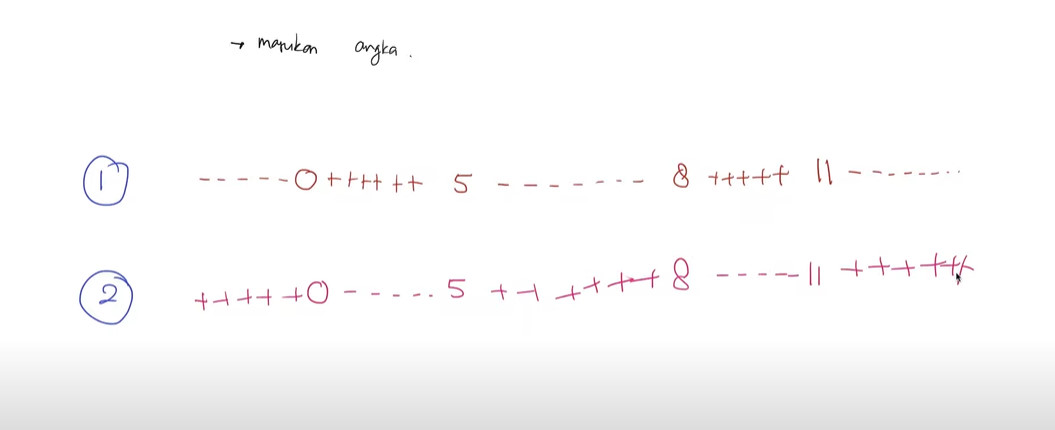 → masukan angka .
1 - - - - - 0 + + + + + + 5 - - - - - - - 8 + + + + + 11 - - - - - - - -
2 + + + + + 0 - - - - - - 5 + + + + + + 8 - - - - - 11 + + + + + +